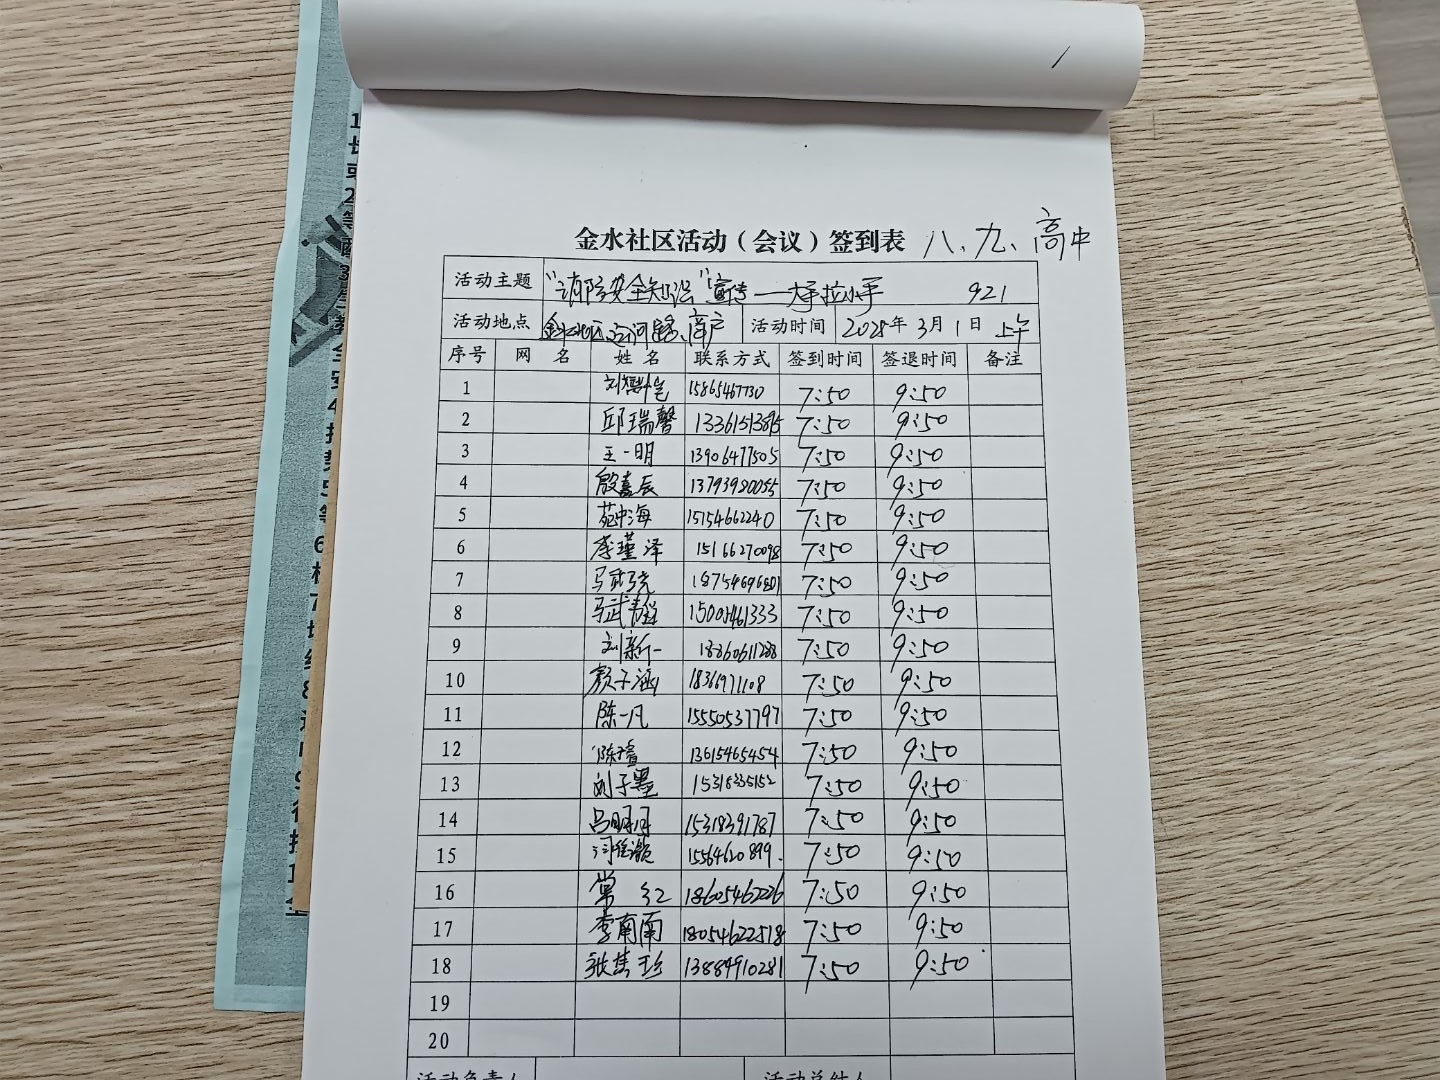 金水社区活动（会议）签到表 八、九、高中
活动主题 “消防安全知识”宣传——大手拉小手 921
活动地点 金水社区运河路、商户 活动时间 2025年3月1日 上午
序号 网 名 姓 名 联系方式 签到时间 签退时间 备注
1 15865467730 7:50 9:50
2 邱瑞馨 7:50 9:50
3 王一明 13906477505 7:50 9:50
4 殷嘉辰 13793920055 7:50 9:50
5 苑中海 15154662240 7:50 9:50
6 李瑾泽 15166270098 7:50 9:50
7 马武骁 18754696801 7:50 9:50
8 马武 7:50 9:50
9 刘新一 18860611288 7:50 9:50
10 颜子涵 1836971108 7:50 9:50
11 陈一凡 15550537797 7:50 9:50
12 陈瑄 13615465454 7:50 9:50
13 刘子墨 15318335152 7:50 9:50
14 吕明月 15318391787 7:50 9:50
15 15564620899 7:50 9:50
16 常红 18605462226 7:50 9:50
17 李南南 18054622518 7:50 9:50
18 张其珍 13884910281 7:50 9:50
19
20
活动负责人 活动总结人